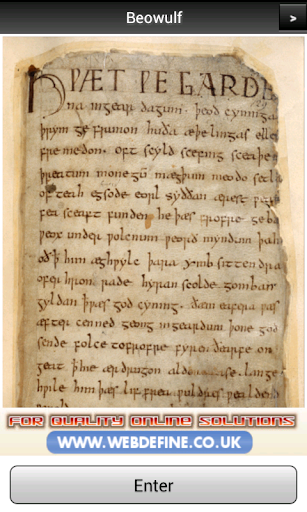 Beowulf
>
HǷÆT ǷE GARDE
na ingear dagum. þeod cyninga
þrym ge frunon huða æþelingas elle
fre medon. oft scyld scefing sceaþe
þreatum monegū mægþum meodo setla
of teah egsode eorl syððan ærest
fea sceaft funden he þæs frofre geba
ƿeox under ƿolcnum ƿeorð myndum þah
oð ꝥ him æghƿylc þara ymb sittendra
ofer hron rade hyran scolde gomban
gyldan ꝥ ƿæs god cyning. ðæm eafera ƿæs
æfter cenned geong ingeardum þone god
sende folce tofrofre fyren ðearfe on
geat ꝥ hie ær drugon aldor ase. lange
hƿile him þæs lif frea ƿuldres ƿealdend
FOR QUALITY ONLINE SOLUTIONS
WWW.WEBDEFINE.CO.UK
Enter